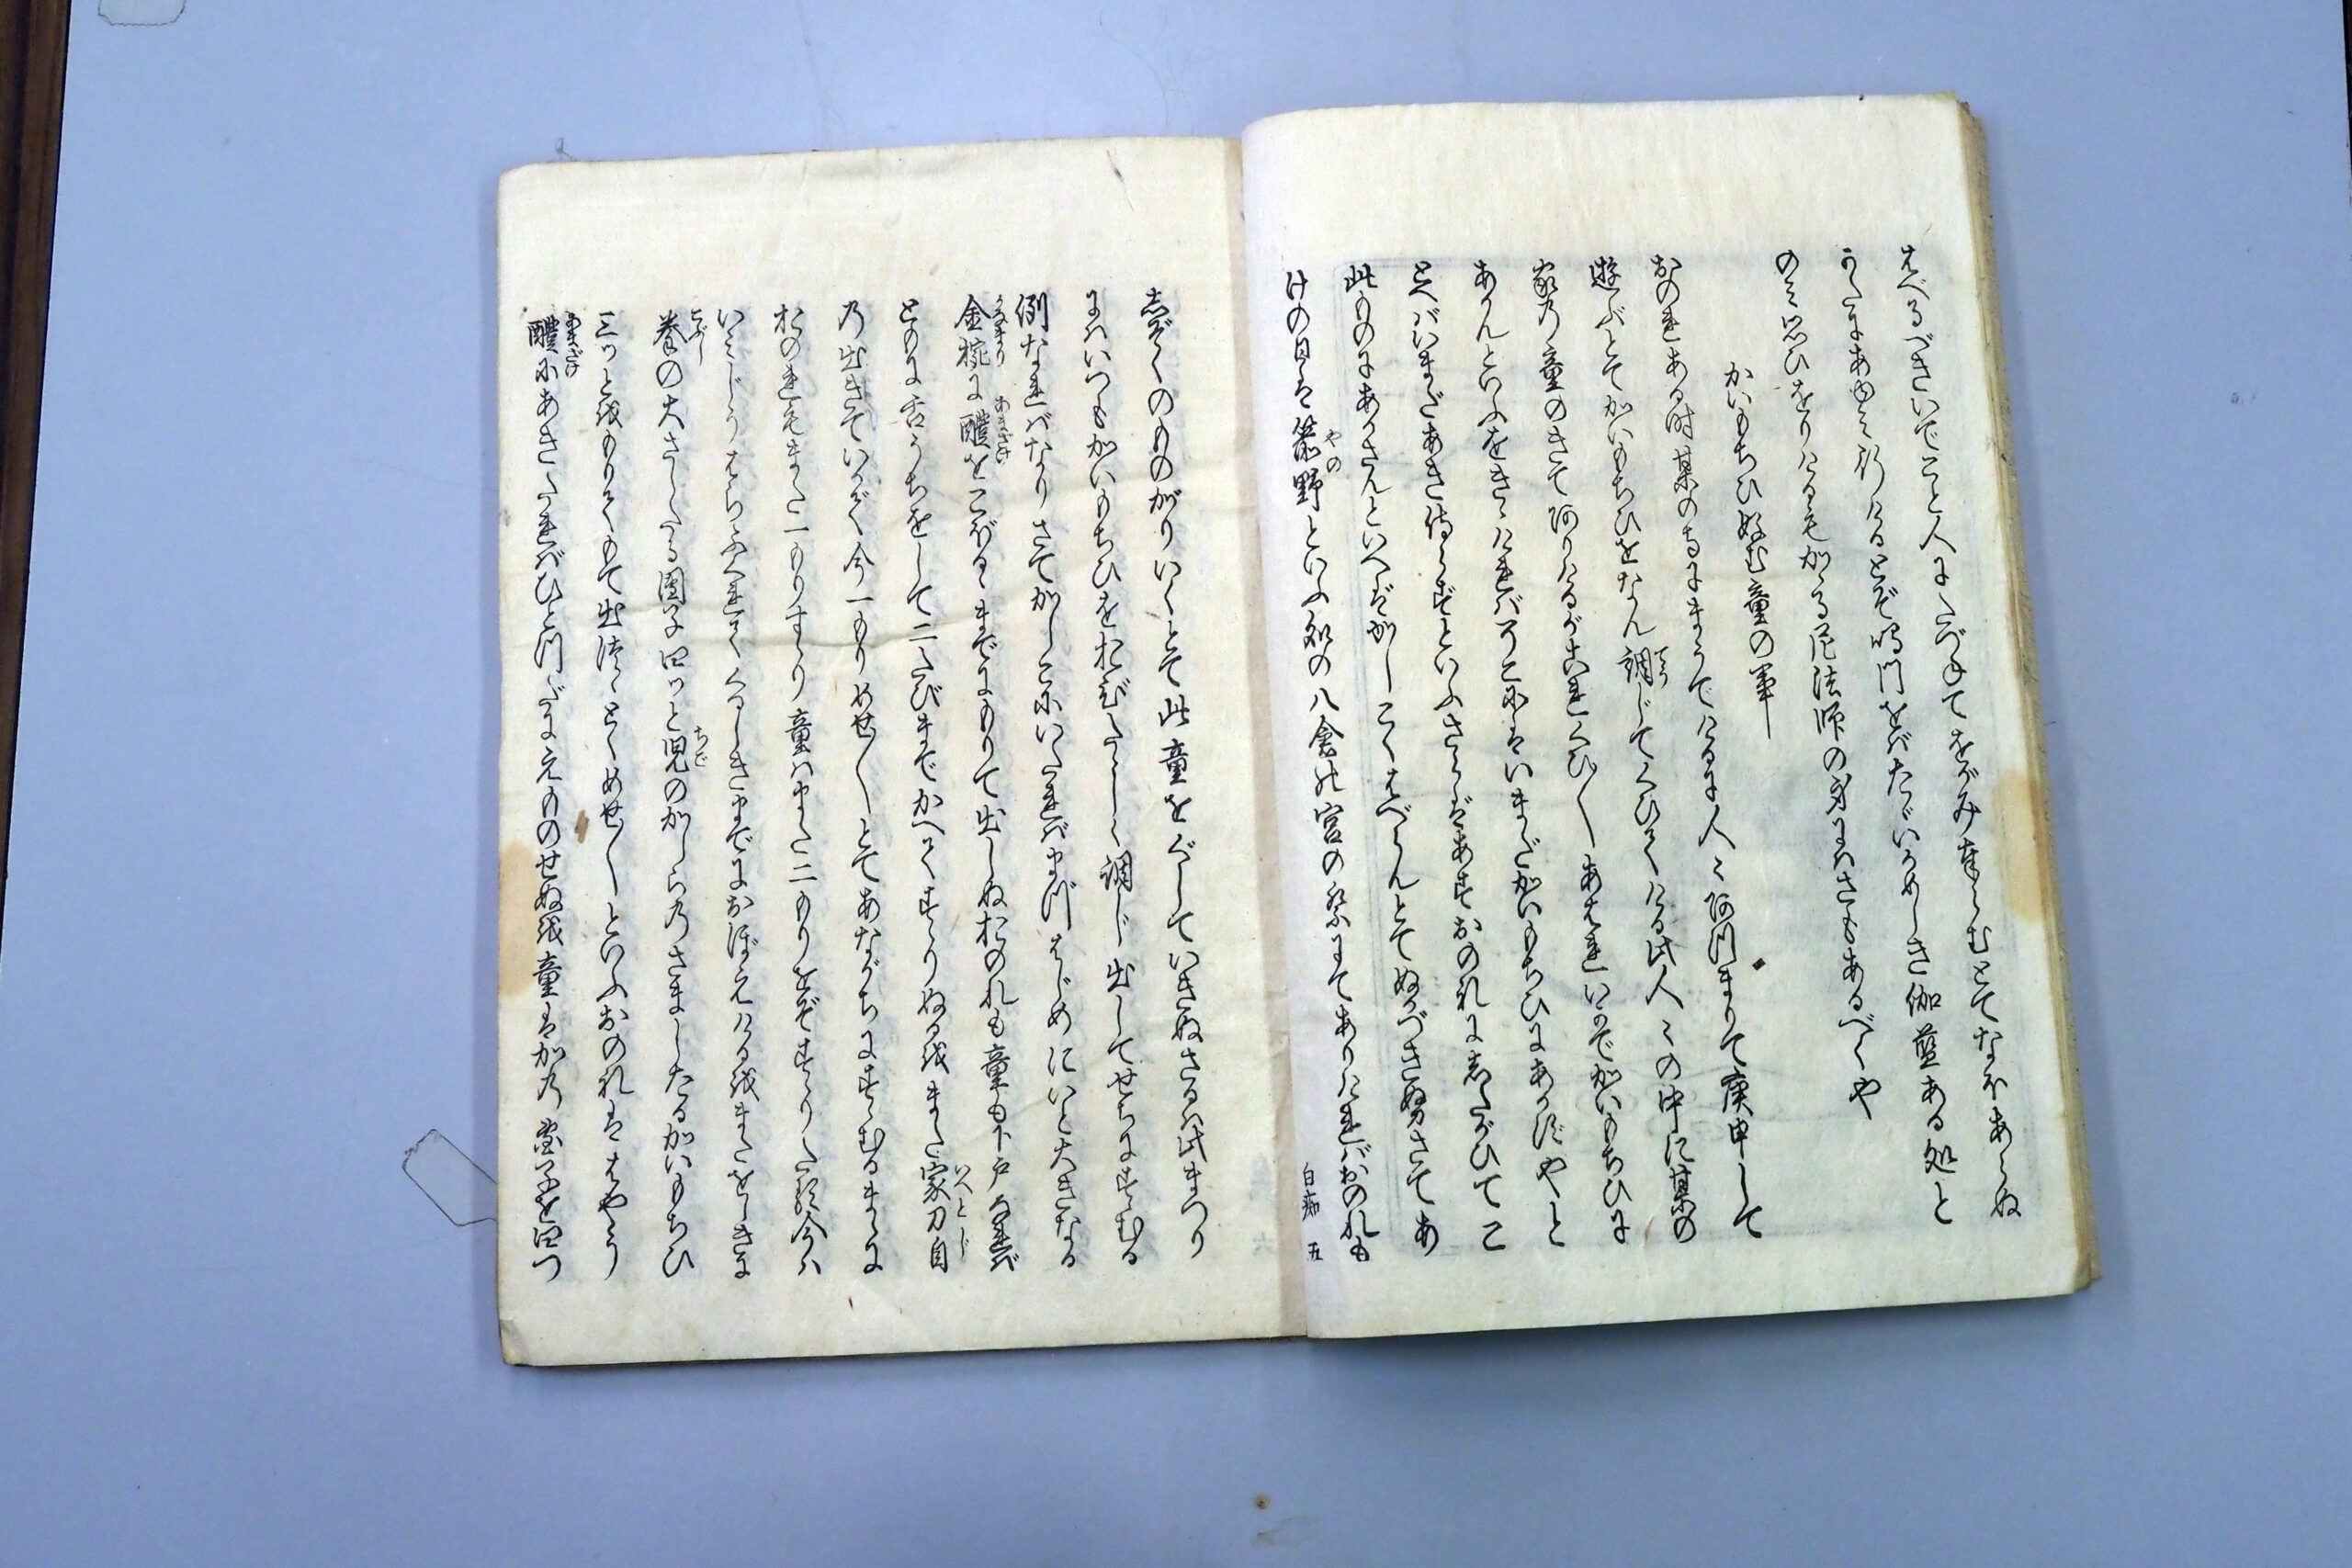 はべるべきいでこと人にたづねてをがみ奉らむとてなほあらぬ
かたにあゆみ行けるとぞ鳴門をばたゞいかめしき伽藍ある処と
のミ思ひをりけるもかゝる尼法師の身にハさもあるべくや
かいもちひ好む童の事
おのれある時某の寺にまうでけるに人ミ阿つまりて庚申して
遊ぶとてかいもちひをなん調じてくひてける此人ミの中に某の
家乃童のきて阿りけるがこれくひ〳〵あはれいかでかいもちひに
あかんといふをきゝければそこにはいまだかいもちひにあかずやと
とへばいまだあき侍らずといふさらばあすおのれにしたがひてこ
此ものにあかさんといへばかしこくはべらんとてぬべきぬ努さてあ
けの日は箭野といふ処の八倉比宮の祭にてありければおのれも
白痴 五
しぞくのものがりいくとて此童をぐしていきぬさるハ此まつり
にハいつもかいもちひをおびたゝしく調じ出してせちにすゝむる
例なればなりさてかしこにいたればまづはじめにいと大きなる
金椀に醴をこぼるゝまでにもりて出しぬおのれも童も下戸なれば
とみに舌うちをして二たびまでかへてすゝりぬるをまた家刀自
乃出きていかく今一もりめせ〳〵とてあながちにすゝむるまゝに
おのれもまた一もりすゝり童ハまた二もりをぞすゝりたる今ハ
いミじうはらふくれてくるしきまでにおぼえけるをまたをしきに
拳の大さしたる団子四ツと児のかしら乃さましたるかいもちひ
三ツとをもりてもて出つゝとくめせ〳〵といふおのれははやう
醴にあきたればひとつだにえものせぬを童はかの団子を四つ